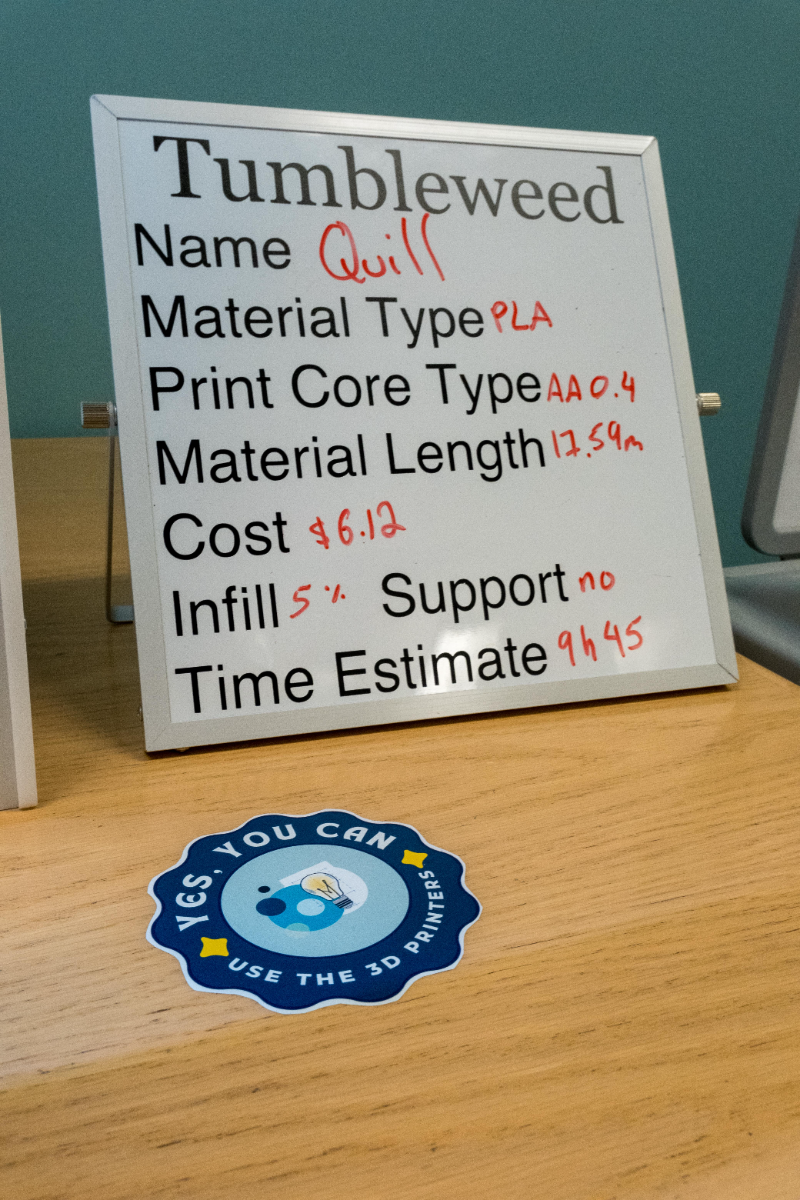 Tumbleweed
Name Quill
Material Type PLA
Print Core Type AA 0.4
Material Length 17.59m
Cost $6.12
Infill 5% Support no
Time Estimate 9h 45
YES, YOU CAN
USE THE 3D PRINTERS